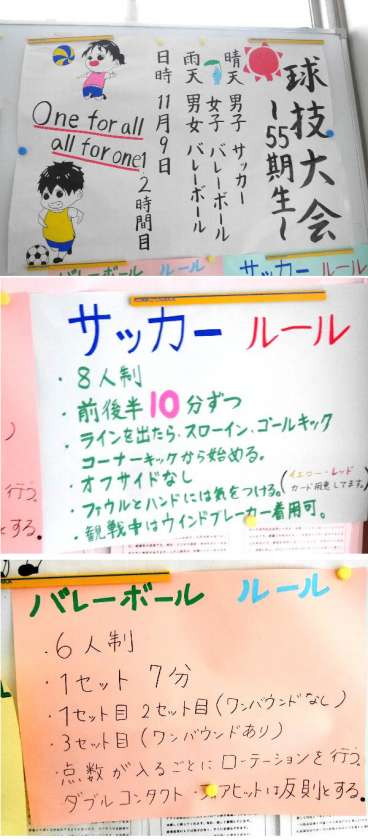 球技大会
~55期生~
晴天 男子 サッカー
女子 バレーボール
雨天 男女 バレーボール
日時 11月9日
1 2時間目
One for all
all for one!
バレーボール ルール
サッカー ルール
サッカー ルール
・8人制
・前後半10分ずつ
・ラインを出たら、スローイン、ゴールキック
コーナーキックから始める。
・オフサイドなし
・ファウルとハンドには気をつける。(イエロー・レッド
カード用意してます。)
・観戦中はウインドブレーカー着用可。
行う。
とする。
バレーボール ルール
・6人制
・1セット 7分
・1セット目 2セット目(ワンバウンドなし)
・3セット目(ワンバウンドあり)
・点数が入るごとにローテーションを行う。
ダブルコンタクト・ アヒットは反則とする。